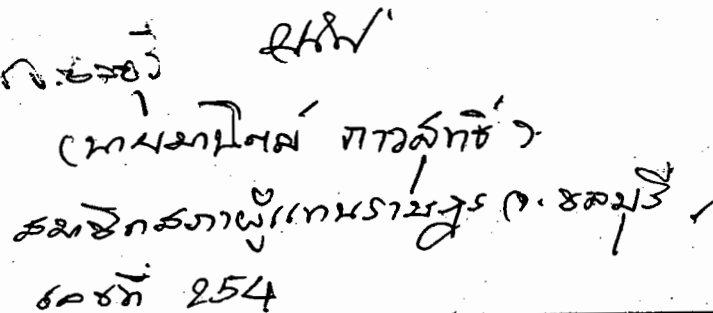 จ.ชลบุรี
(นายมานิตย์ ภาวสุทธิ์)
สมาชิกสภาผู้แทนราษฎร จ.ชลบุรี
เลขที่ 254